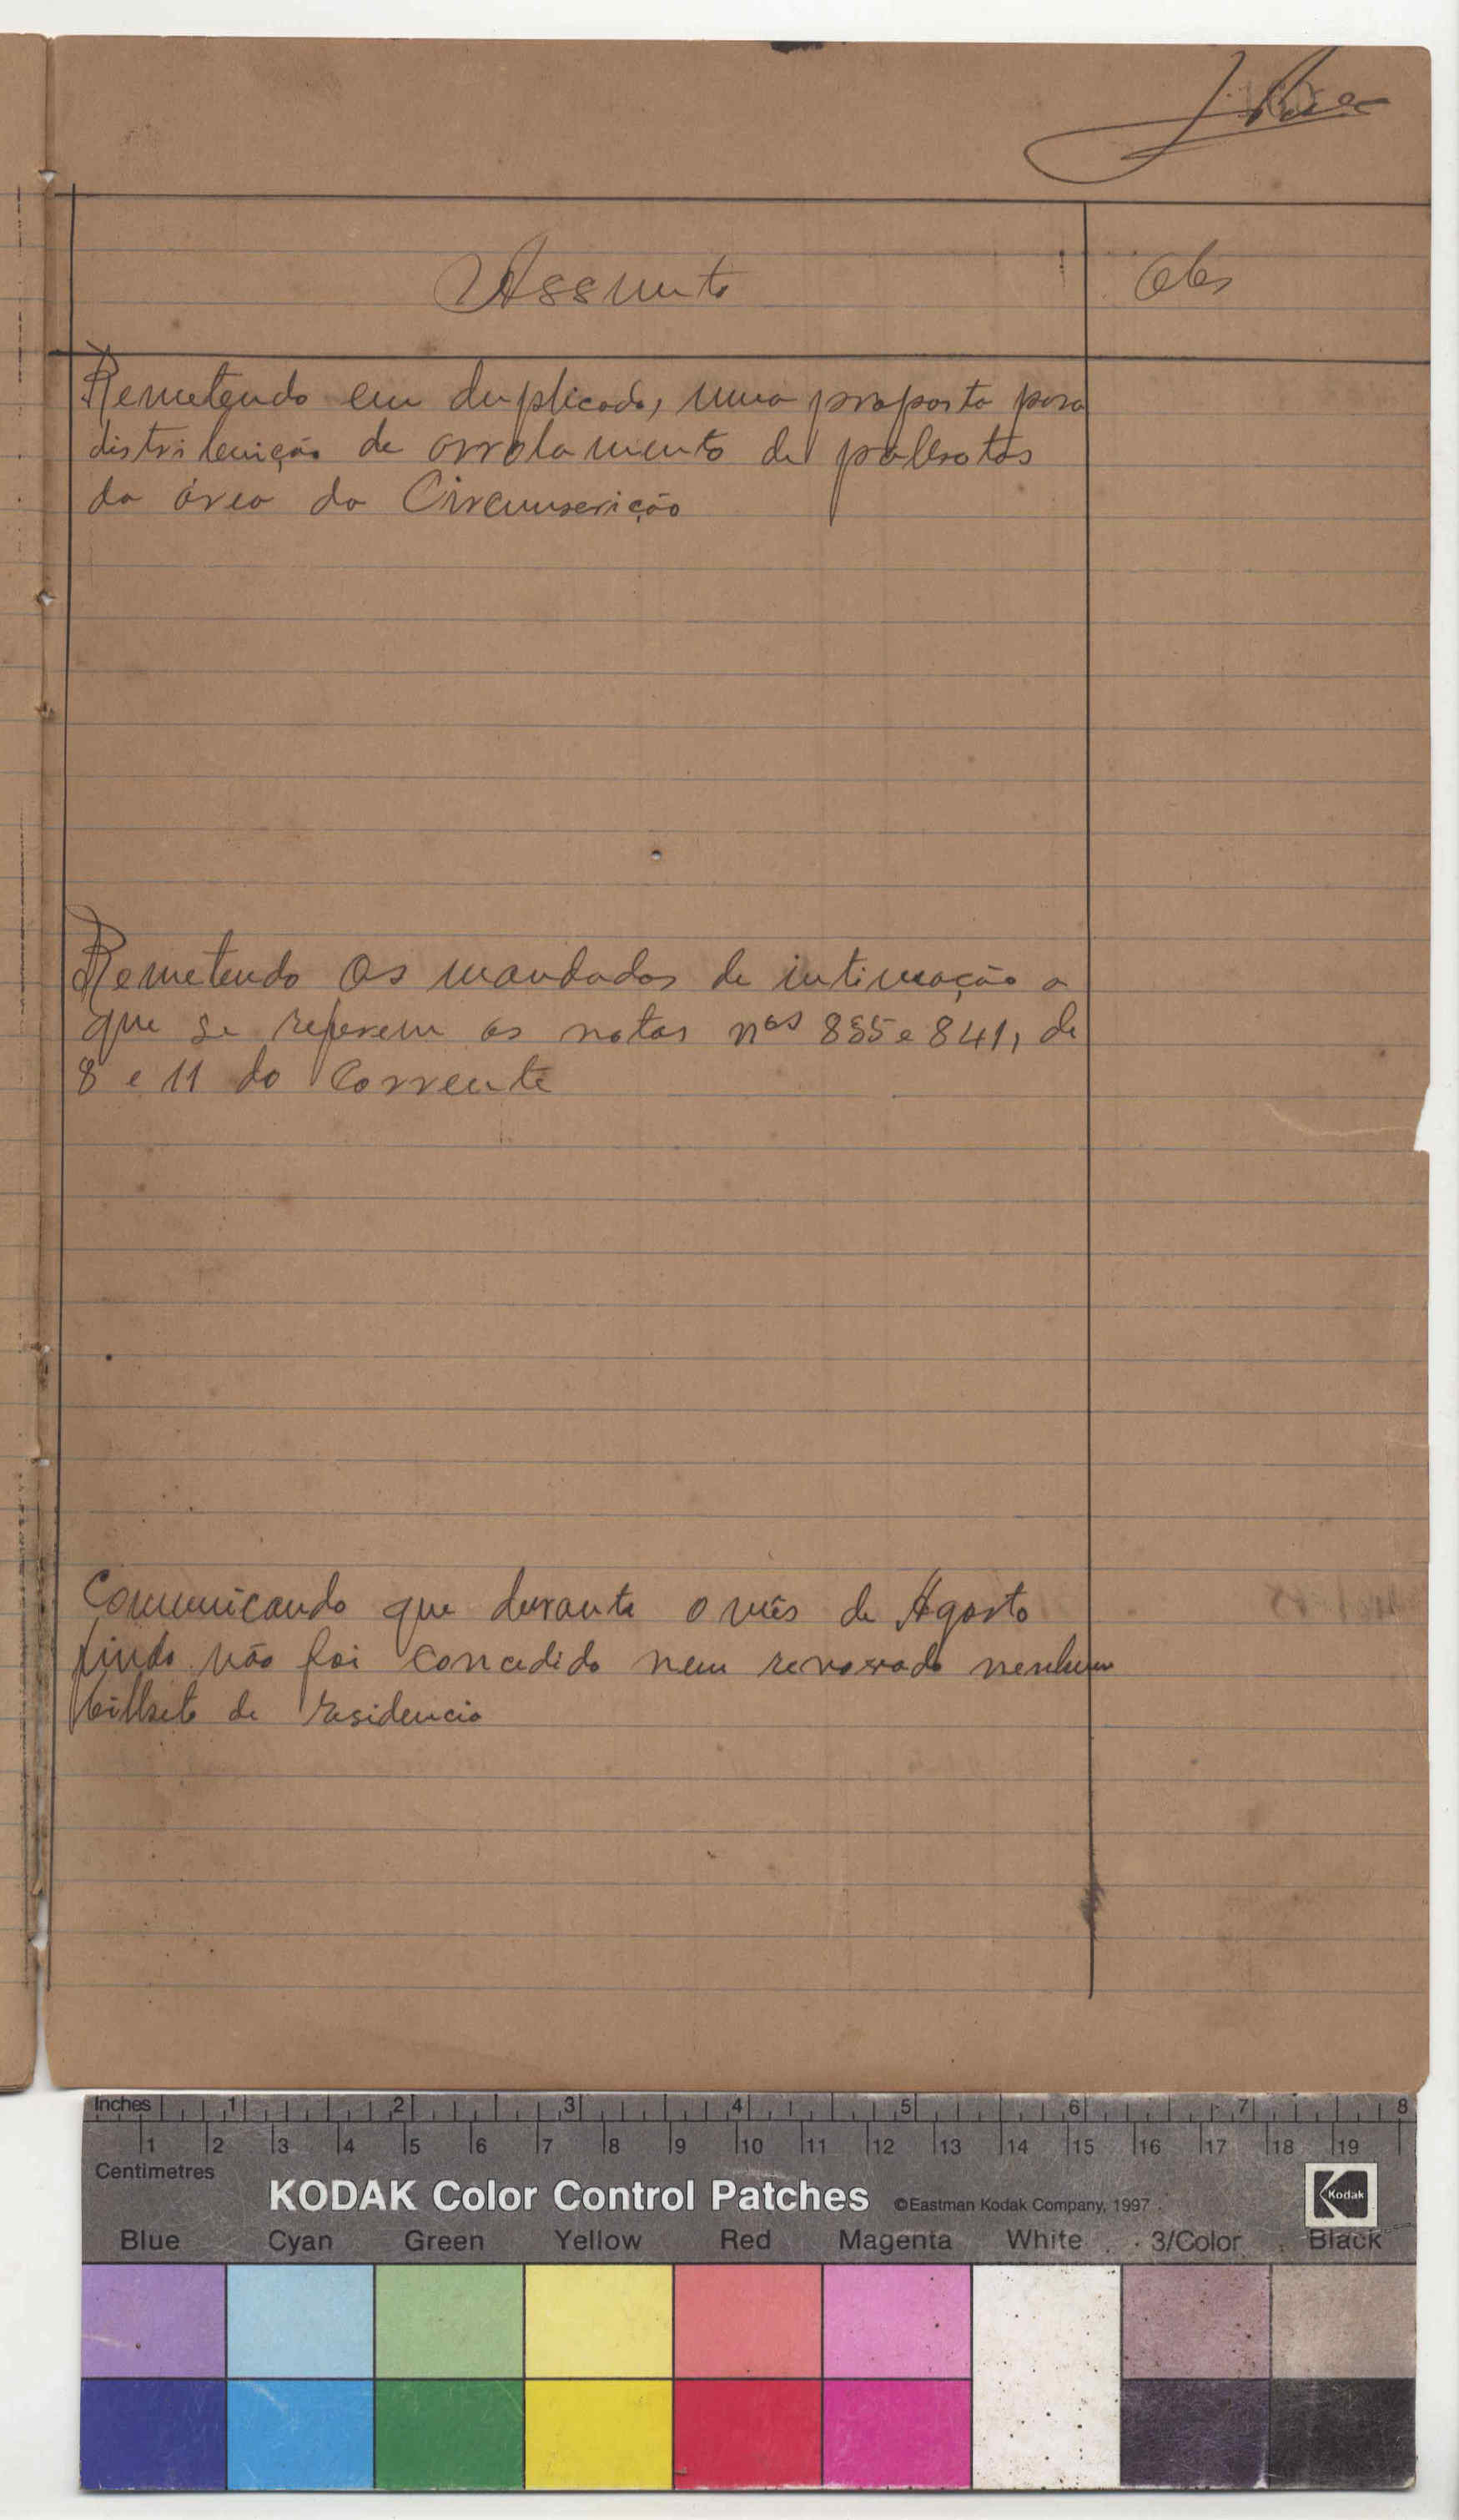 Assunto
Obs
Remetendo em duplicado, uma proposta para
distribuição de arrolamento de palhotas
da área da Circunscrição
Remetendo os mandados de intimação a
que se referem as notas nºs 835 e 841, de
8 e 11 do corrente
Comunicando que durante o mês de Agosto
findo não foi concedido nem renovado nenhum
bilhete de residencia
Inches 1 2 3 4 5 6 7 8
1 2 3 4 5 6 7 8 9 10 11 12 13 14 15 16 17 18 19
Centimetres
KODAK Color Control Patches ©Eastman Kodak Company, 1997
Kodak
Blue Cyan Green Yellow Red Magenta White 3/Color Black